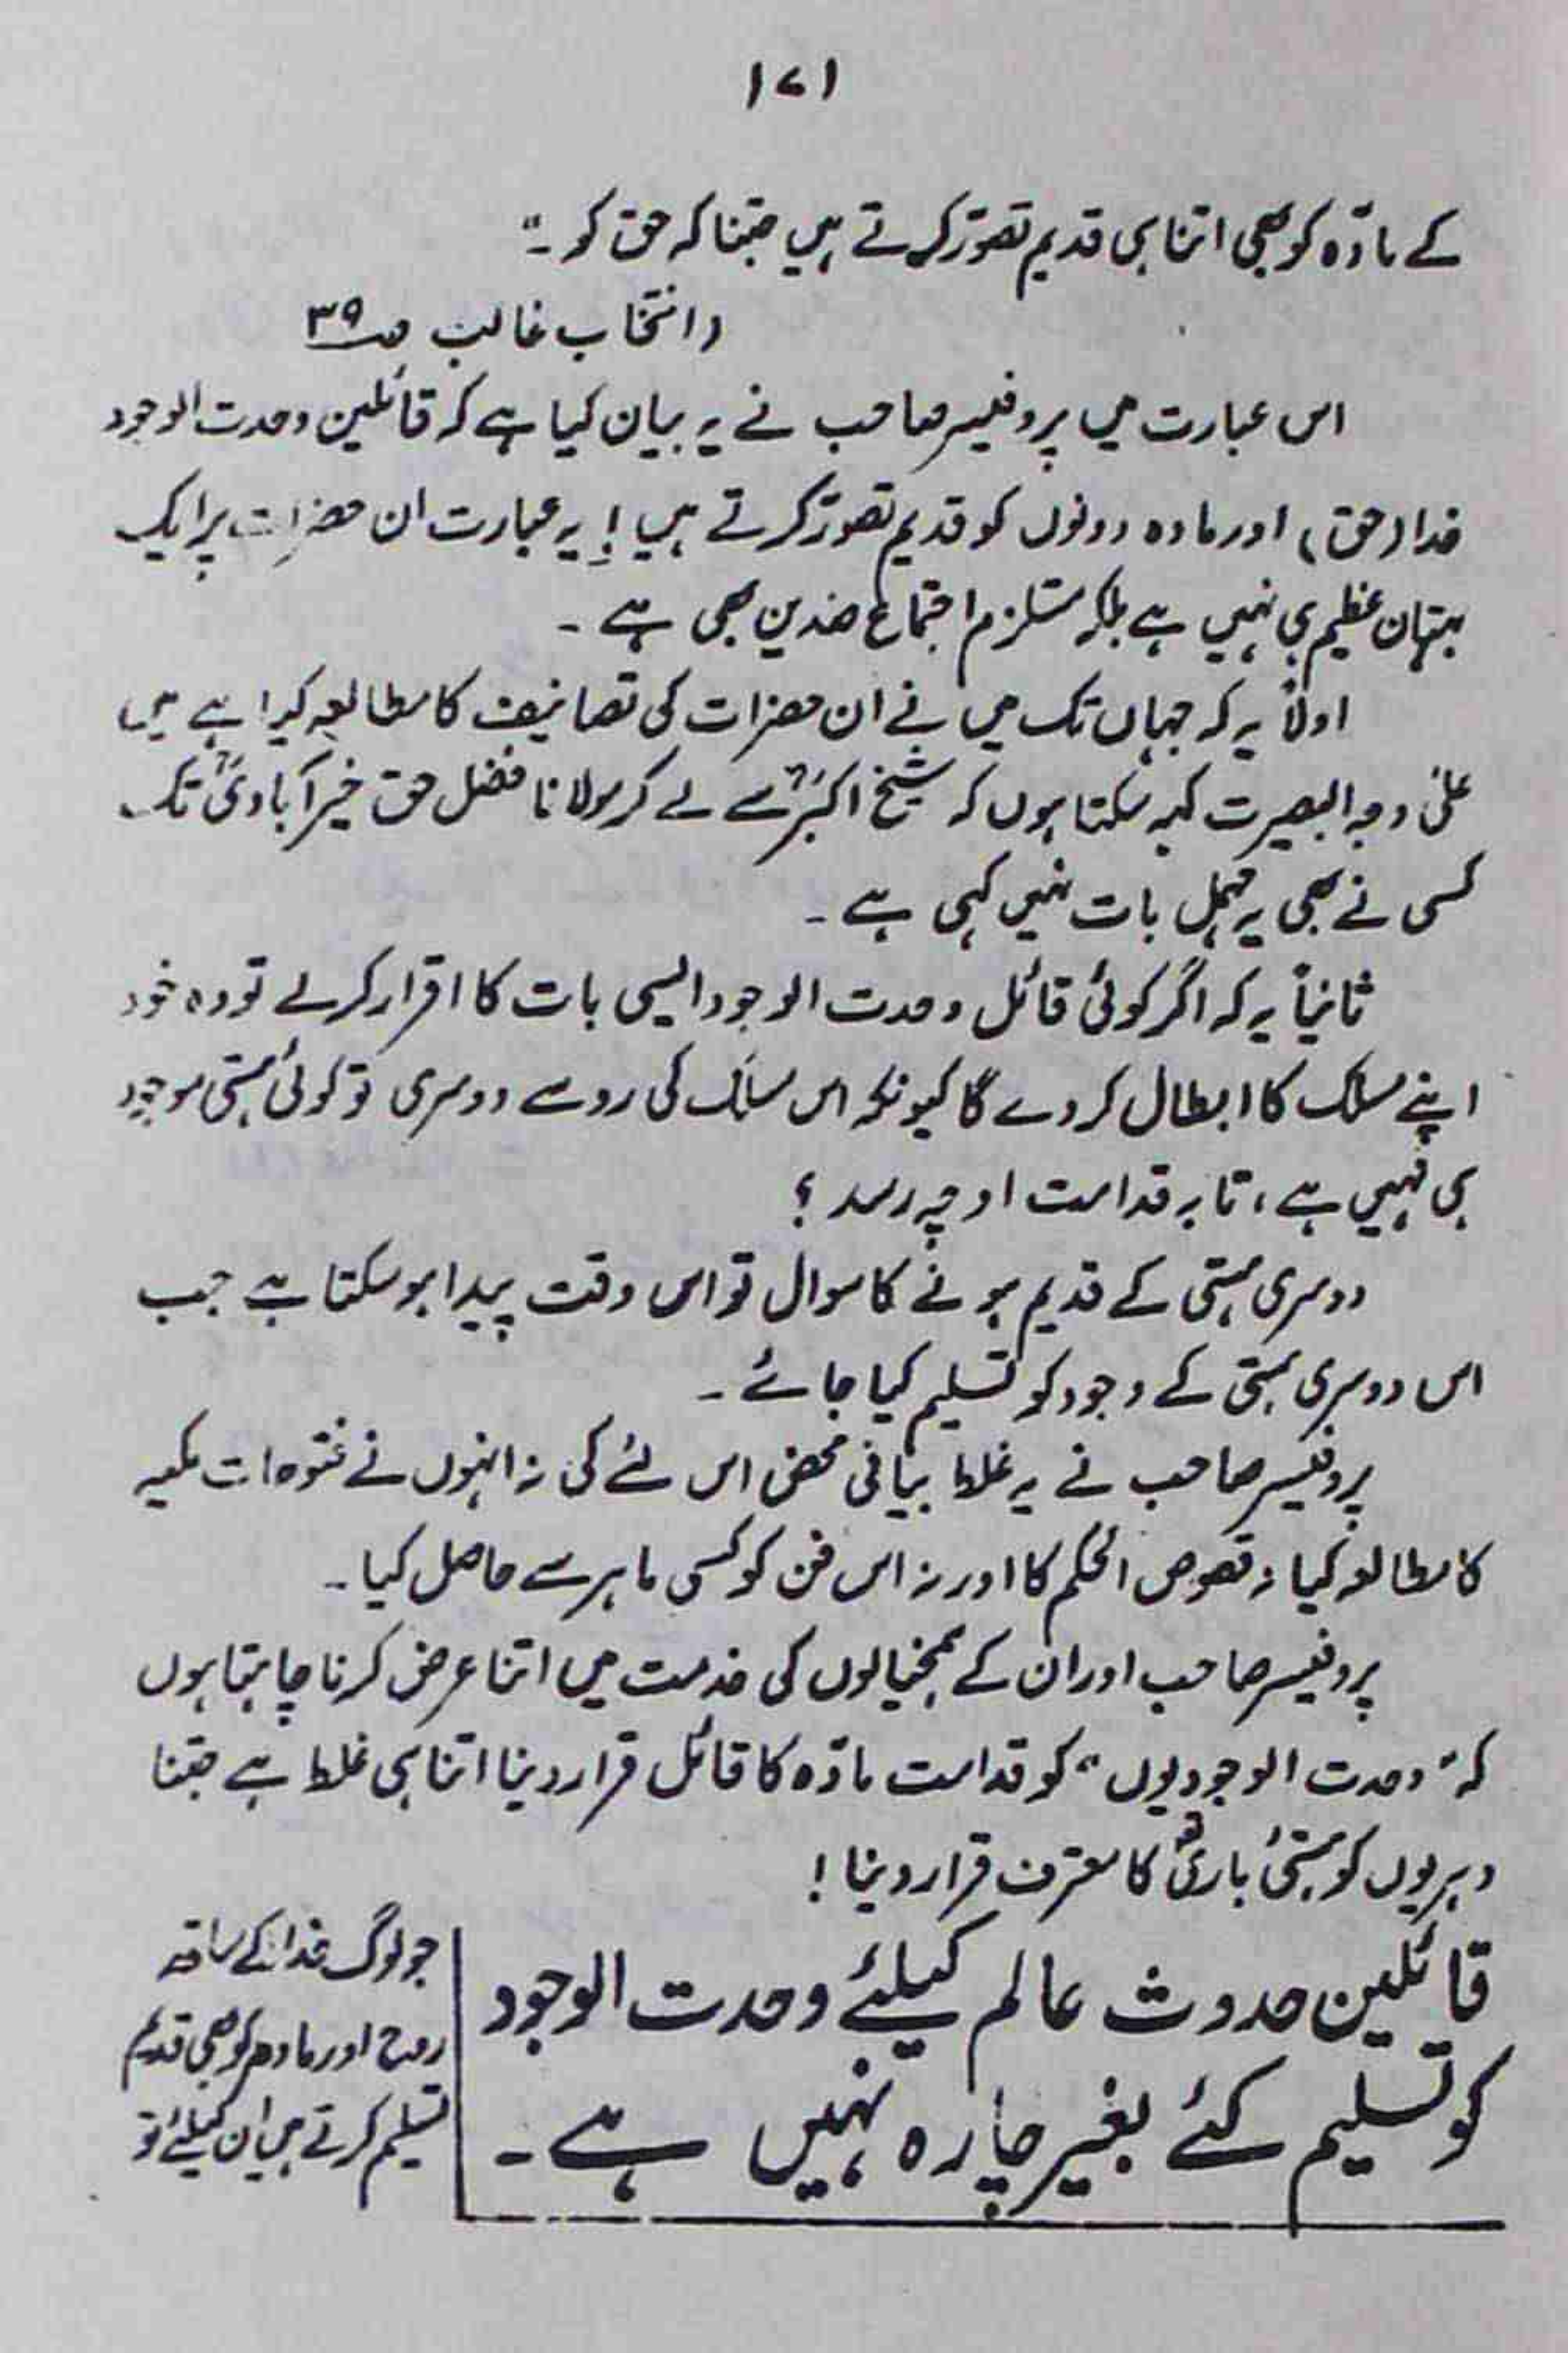 ۱۷۱
کے مادّہ کو بھی اتنا ہی قدیم تصوّر کرتے ہیں جتنا کہ حق کو ۔"
(انتخاب غالب ص۳۹
اس عبارت میں پروفیسر صاحب نے یہ بیان کیا ہے کہ قائلین وحدت الوجود
خدا (حق) اور مادہ دونوں کو قدیم تصوّر کرتے ہیں! یہ عبارت ان حضرات پر ایک
بہتان عظیم ہی نہیں ہے بلکہ مستلزم اجتماع ضدین بھی ہے ۔
اولاً یہ کہ جہاں تک میں نے ان حضرات کی تصانیف کا مطالعہ کیا ہے میں
علیٰ وجہ البصیرت کہہ سکتا ہوں کہ شیخ اکبرؒ سے لے کر مولانا فضل حق خیرآبادیؒ تک
کسی نے بھی یہ مہمل بات نہیں کہی ہے ۔
ثانیاً یہ کہ اگر کوئی قائل وحدت الوجود ایسی بات کا اقرار کر لے تو وہ خود
اپنے مسلک کا ابطال کر دے گا کیونکہ اس مسلک کی رو سے دوسری تو کوئی ہستی موجود
ہی نہیں ہے، تا بہ قدامت او چہ رسد ؟
دوسری ہستی کے قدیم ہونے کا سوال تو اس وقت پیدا ہو سکتا ہے جب
اس دوسری ہستی کے وجود کو تسلیم کیا جائے ۔
پروفیسر صاحب نے یہ غلط بیانی محض اس لئے کی نہ انہوں نے فتوحات مکیہ
کا مطالعہ کیا نہ فصوص الحکم کا اور نہ اس فن کو کسی ماہر سے حاصل کیا ۔
پروفیسر صاحب اور ان کے ہمخیالوں کی خدمت میں اتنا عرض کرنا چاہتا ہوں
کہ "وحدت الوجودیوں" کو قدامت مادّہ کا قائل قرار دینا اتنا ہی غلط ہے جتنا
دہریوں کو ہستیٔ باری کا معترف قرار دینا !
قائلین حدوث عالم کیلئے وحدت الوجود
کو تسلیم کئے بغیر چارہ نہیں ہے ۔
جو لوگ خدا کے ساتھ
روح اور مادہ کو بھی قدیم
تسلیم کرتے ہیں ان کیلئے تو